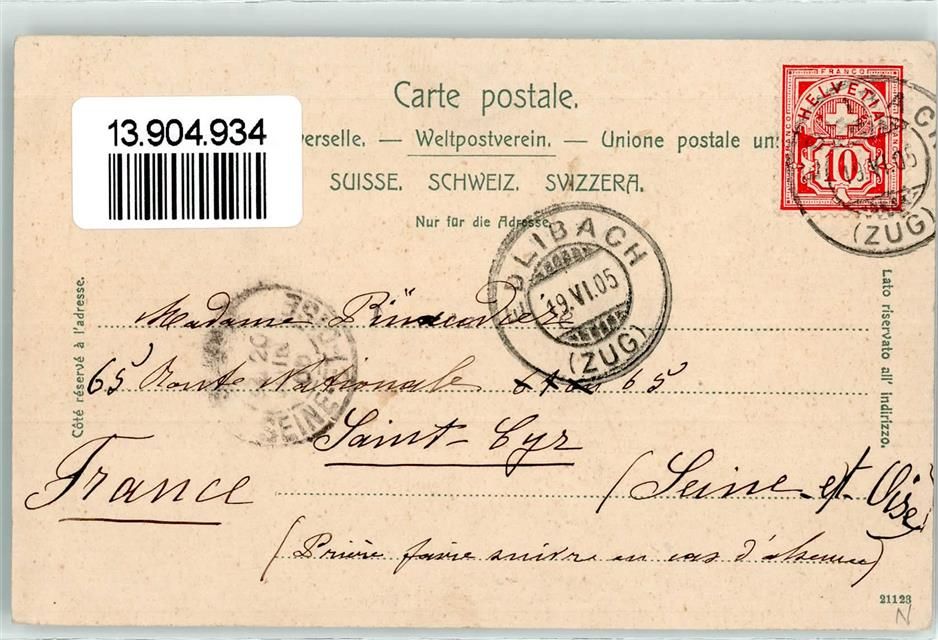 Carte postale.
13.904.934
erselle. — Weltpostverein. — Unione postale un
SUISSE. SCHWEIZ. SVIZZERA.
Nur für die Adresse.
FRANCO
HELVETIA
10
(ZUG)
EDLIBACH
19.VI.05
(ZUG)
Côté réservé à l'adresse.
Lato riservato all' indirizzo.
Madame
65 Route Nationale 65
Saint-Cyr
France
(Seine-et-Oise)
(Prière faire suivre en cas d'absence)
21123
N